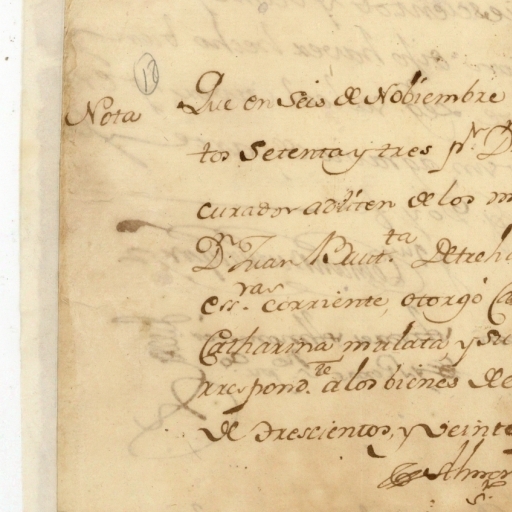 10
Nota Que en Seis de Nobiembre
tos Setenta y tres pr. D
curador adbiten de los m
Dn. Juan Baut.ta Detreh
ess.ras corriente, otorgó Ca
Catharina mulata y su
rrespond.te a los bienes de
de trescientos, y veinte